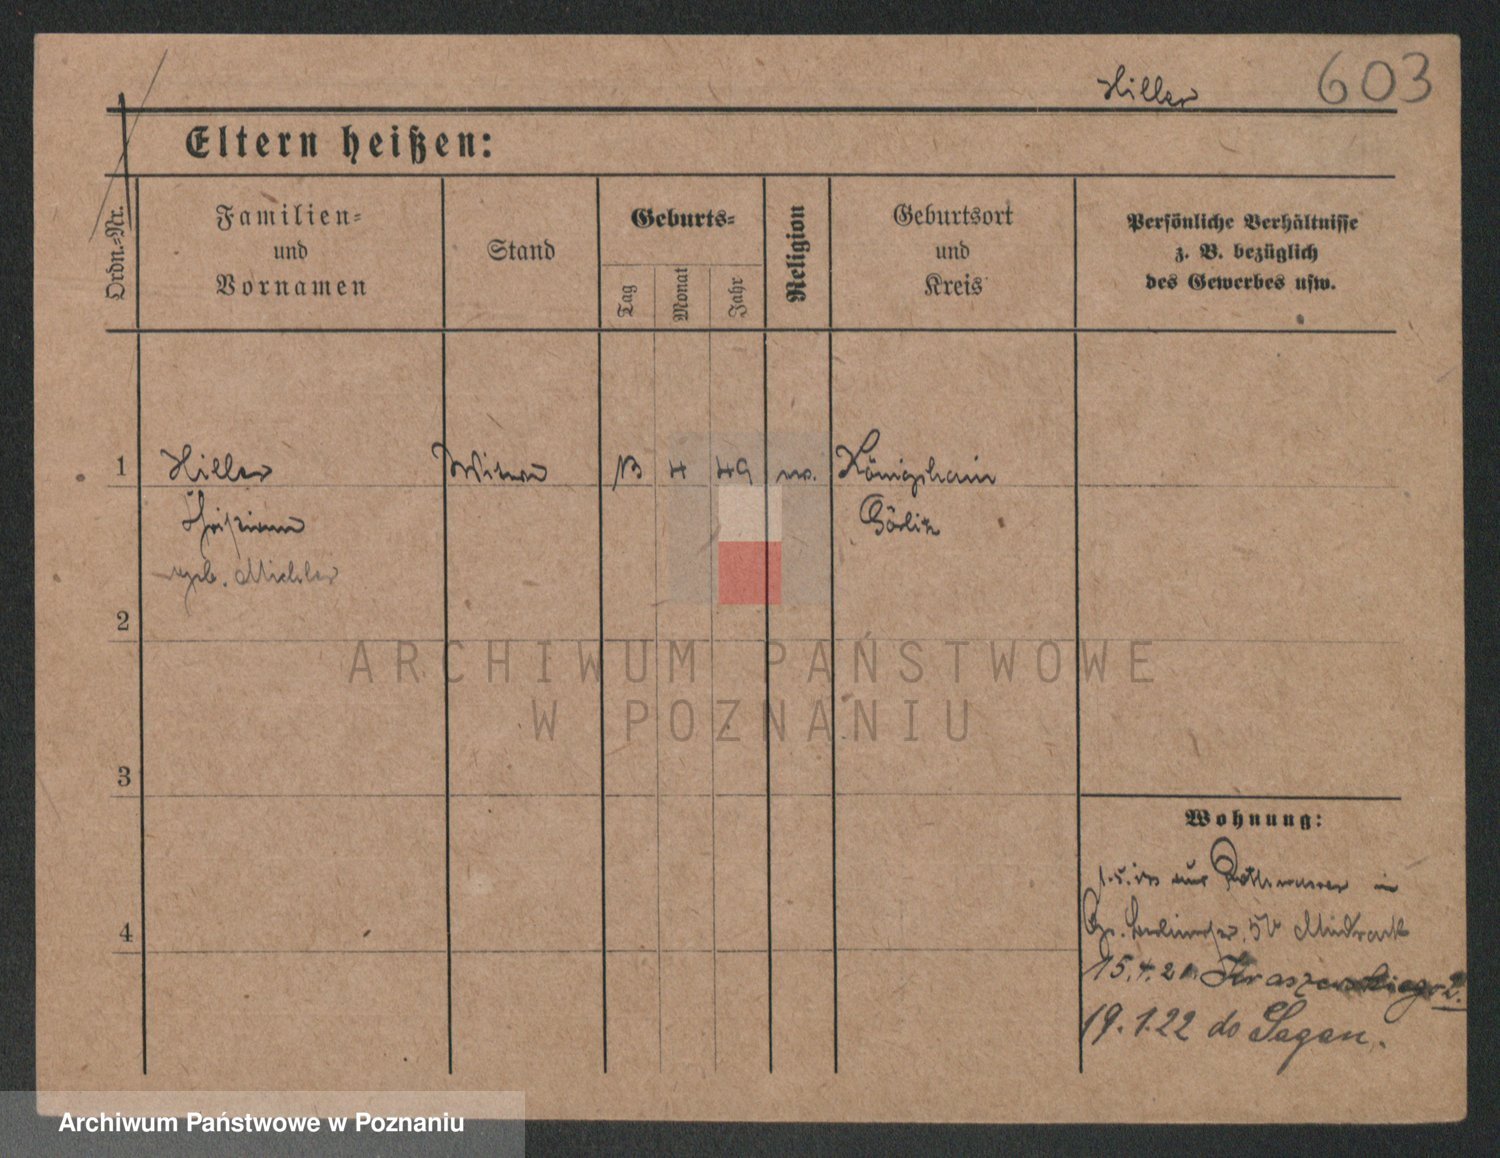 Hiller 603
Eltern heißen:
Ordn.-Nr.
Familien-
und
Vornamen
Stand
Geburts-
Tag
Monat
Jahr
Religion
Geburtsort
und
Kreis
Persönliche Verhältnisse
z. B. bezüglich
des Gewerbes usw.
1 Hiller Witwe 13 4 49 ev. Königshain
Christiane Görlitz
geb. Michler
2
3
4
Wohnung:
aus in
Gr. Berlinerstr.
15.4.21 Kraszewskiego 2.
19.1.22 do Sagan.
ARCHIWUM PAŃSTWOWE
W POZNANIU
Archiwum Państwowe w Poznaniu